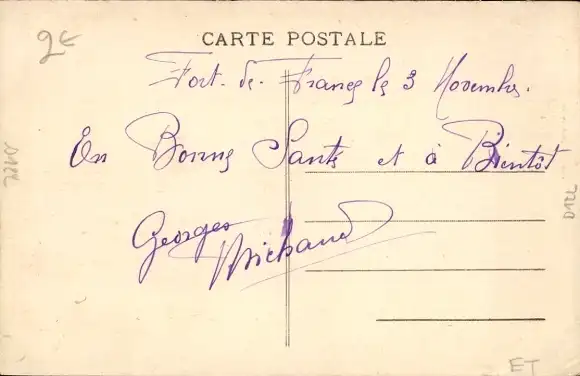 2€
CARTE POSTALE
Fort-de-France le 3 Novembre.
En Bonne Santé et à Bientôt
Georges Michaud
D122
D122
ET